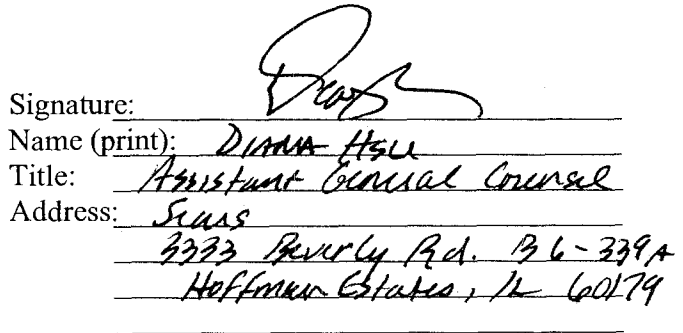 Signature:
Name (print): Diana Hsu
Title: Assistant General Counsel
Address: Sears
3333 Beverly Rd. B6-339A
Hoffman Estates, IL 60179